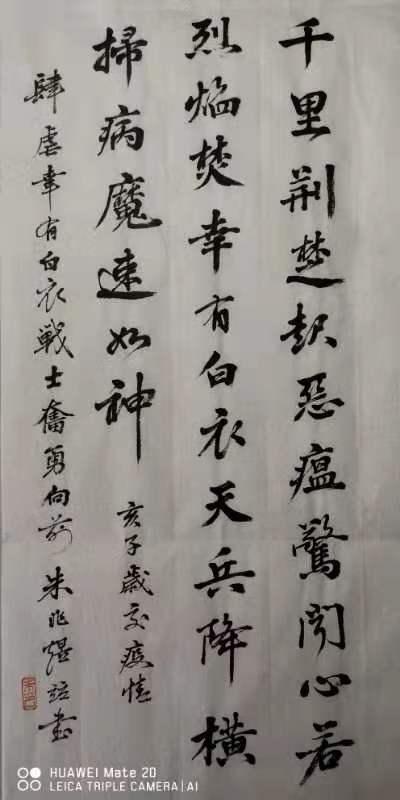 千里荆楚起惡瘟驚闻心若
烈焰焚幸有白衣天兵降横
掃病魔速如神
亥子歲交疫情
肆虐幸有白衣戰士奮勇向前 朱兆 書
HUAWEI Mate 20
LEICA TRIPLE CAMERA | AI